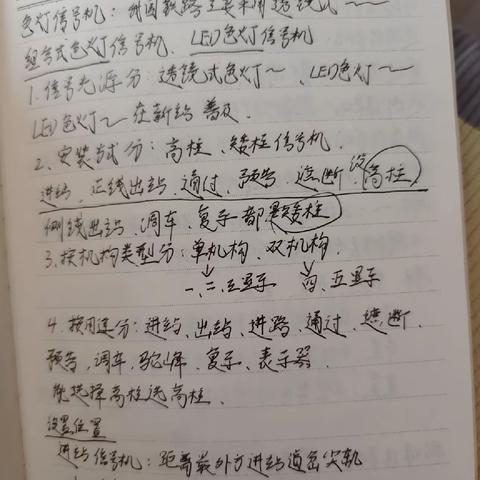 色灯信号机：我国铁路主要采用透镜式〜〜
组合式色灯信号机、LED色灯信号机
1.信号光源分：透镜式色灯〜、LED色灯〜
LED色灯〜在新站普及.
2、安装方式分：高柱、矮柱信号机.
进站、正线出站、通过、预告、遮断 设高柱
侧线出站、调车、复示都是矮柱
3.按机构类型分：单机构、双机构.
一、二、三显示 四、五显示
4.按用途分：进站、出站、进路、通过、遮断、
预告、调车、驼峰、复示、表示器.
能选择高柱选高柱.
设置位置
进站信号机：距离最外方进站道岔尖轨